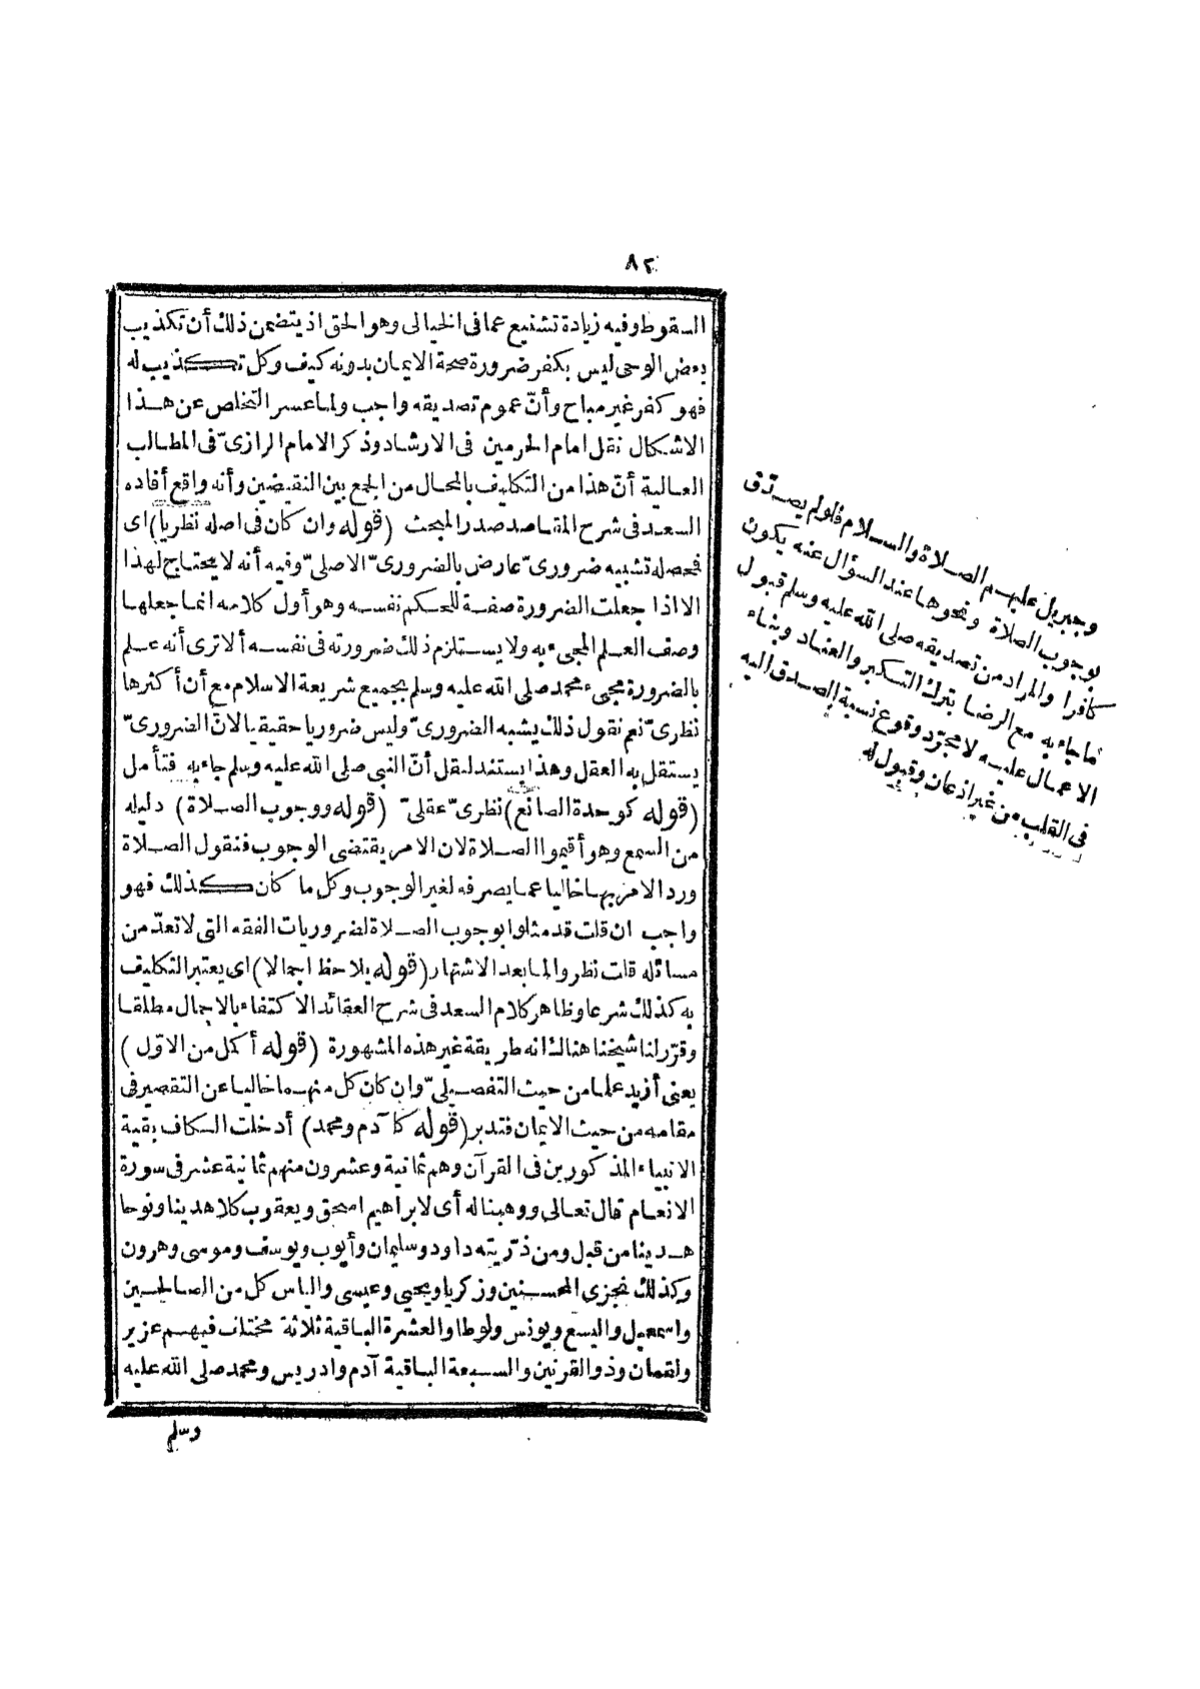 ٨٢
السقوط وفيه زيادة تشنيع عما فى الخيالى وهو الحق اذ يتضمن ذلك أن تكذيب
بعض الوحى ليس بكفر ضرورة صحة الايمان بدونه كيف وكل تكذيب له
فهو كفر غير مباح وأنّ عموم تصديقه واجب ولما عسر التخلص عن هذا
الاشكال نقل امام الحرمين فى الارشاد وذكر الامام الرازىّ فى المطالب
العالية أنّ هذا من التكليف بالمحال من الجمع بين النقيضين وأنه واقع أفاده
السعد فى شرح المقاصد صدر المبحث (قوله وان كان فى اصله نظريا) اى
فحصله تشبيه ضرورىّ عارض بالضرورىّ الاصلىّ وفيه أنه لا يحتاج لهذا
الا اذا جعلت الضرورة صفة للحكم نفسه وهو أول كلامه انما جعلها
وصف العلم المجىء به ولا يستلزم ذلك ضرورته فى نفسه ألا ترى أنه علم
بالضرورة مجىء محمد صلى الله عليه وسلم بجميع شريعة الاسلام مع أن أكثرها
نظرىّ نعم نقول ذلك يشبه الضرورىّ وليس ضروريا حقيقيا لانّ الضرورىّ
يستقل به العقل وهذا يستند لنقل أنّ النبي صلى الله عليه وسلم جاء به فتأمل
(قوله كوحدة الصانع) نظرىّ عقلىّ (قوله ووجوب الصلاة) دليله
من السمع وهو أقيموا الصلاة لان الامر يقتضى الوجوب فنقول الصلاة
ورد الامر بها خاليا عما يصرفه لغير الوجوب وكل ما كان كذلك فهو
واجب ان قلت قد مثلوا بوجوب الصلاة لضروريات الفقه التى لا تعدّ من
مسائله قلت نظروا لما بعد الاشتهار (قوله يلاحظ اجمالا) اى يعتبر التكليف
به كذلك شرعا وظاهر كلام السعد فى شرح العقائد الاكتفاء بالاجمال مطلقا
وقرّر لنا شيخنا هنالك انه طريقة غير هذه المشهورة (قوله أكمل من الاوّل)
يعنى أزيد علما من حيث التفصيلىّ وان كان كل منهما خاليا عن التقصير فى
مقامه من حيث الايمان فتدبر (قوله كا آدم ومحمد) أدخلت الكاف بقية
الانبياء المذكورين فى القرآن وهم ثمانية وعشرون منهم ثمانية عشر فى سورة
الانعام قال تعالى ووهبنا له أى لابراهيم اسحق ويعقوب كلا هدينا ونوحا
هدينا من قبل ومن ذرّيته داود وسليمان وأيوب ويوسف وموسى وهرون
وكذلك نجزى المحسنين وزكريا ويحيى وعيسى والياس كل من الصالحين
واسمعيل واليسع ويونس ولوطا والعشرة الباقية ثلاثة مختلف فيهم عزير
ولقمان وذو القرنين والسبعة الباقية آدم وادريس ومحمد صلى الله عليه
وسلم
وجبريل عليهم الصلاة والسلام فلو لم يصدّق
بوجوب الصلاة ونحوها عند السؤال عنه يكون
كافرا والمراد من تصديقه صلى الله عليه وسلم قبول
ما جاء به مع الرضا بترك التكبر والعناد وبناء
الاعمال عليه لا مجرّد وقوع نسبة الصدق اليه
فى القلب من غير اذعان وقبول له